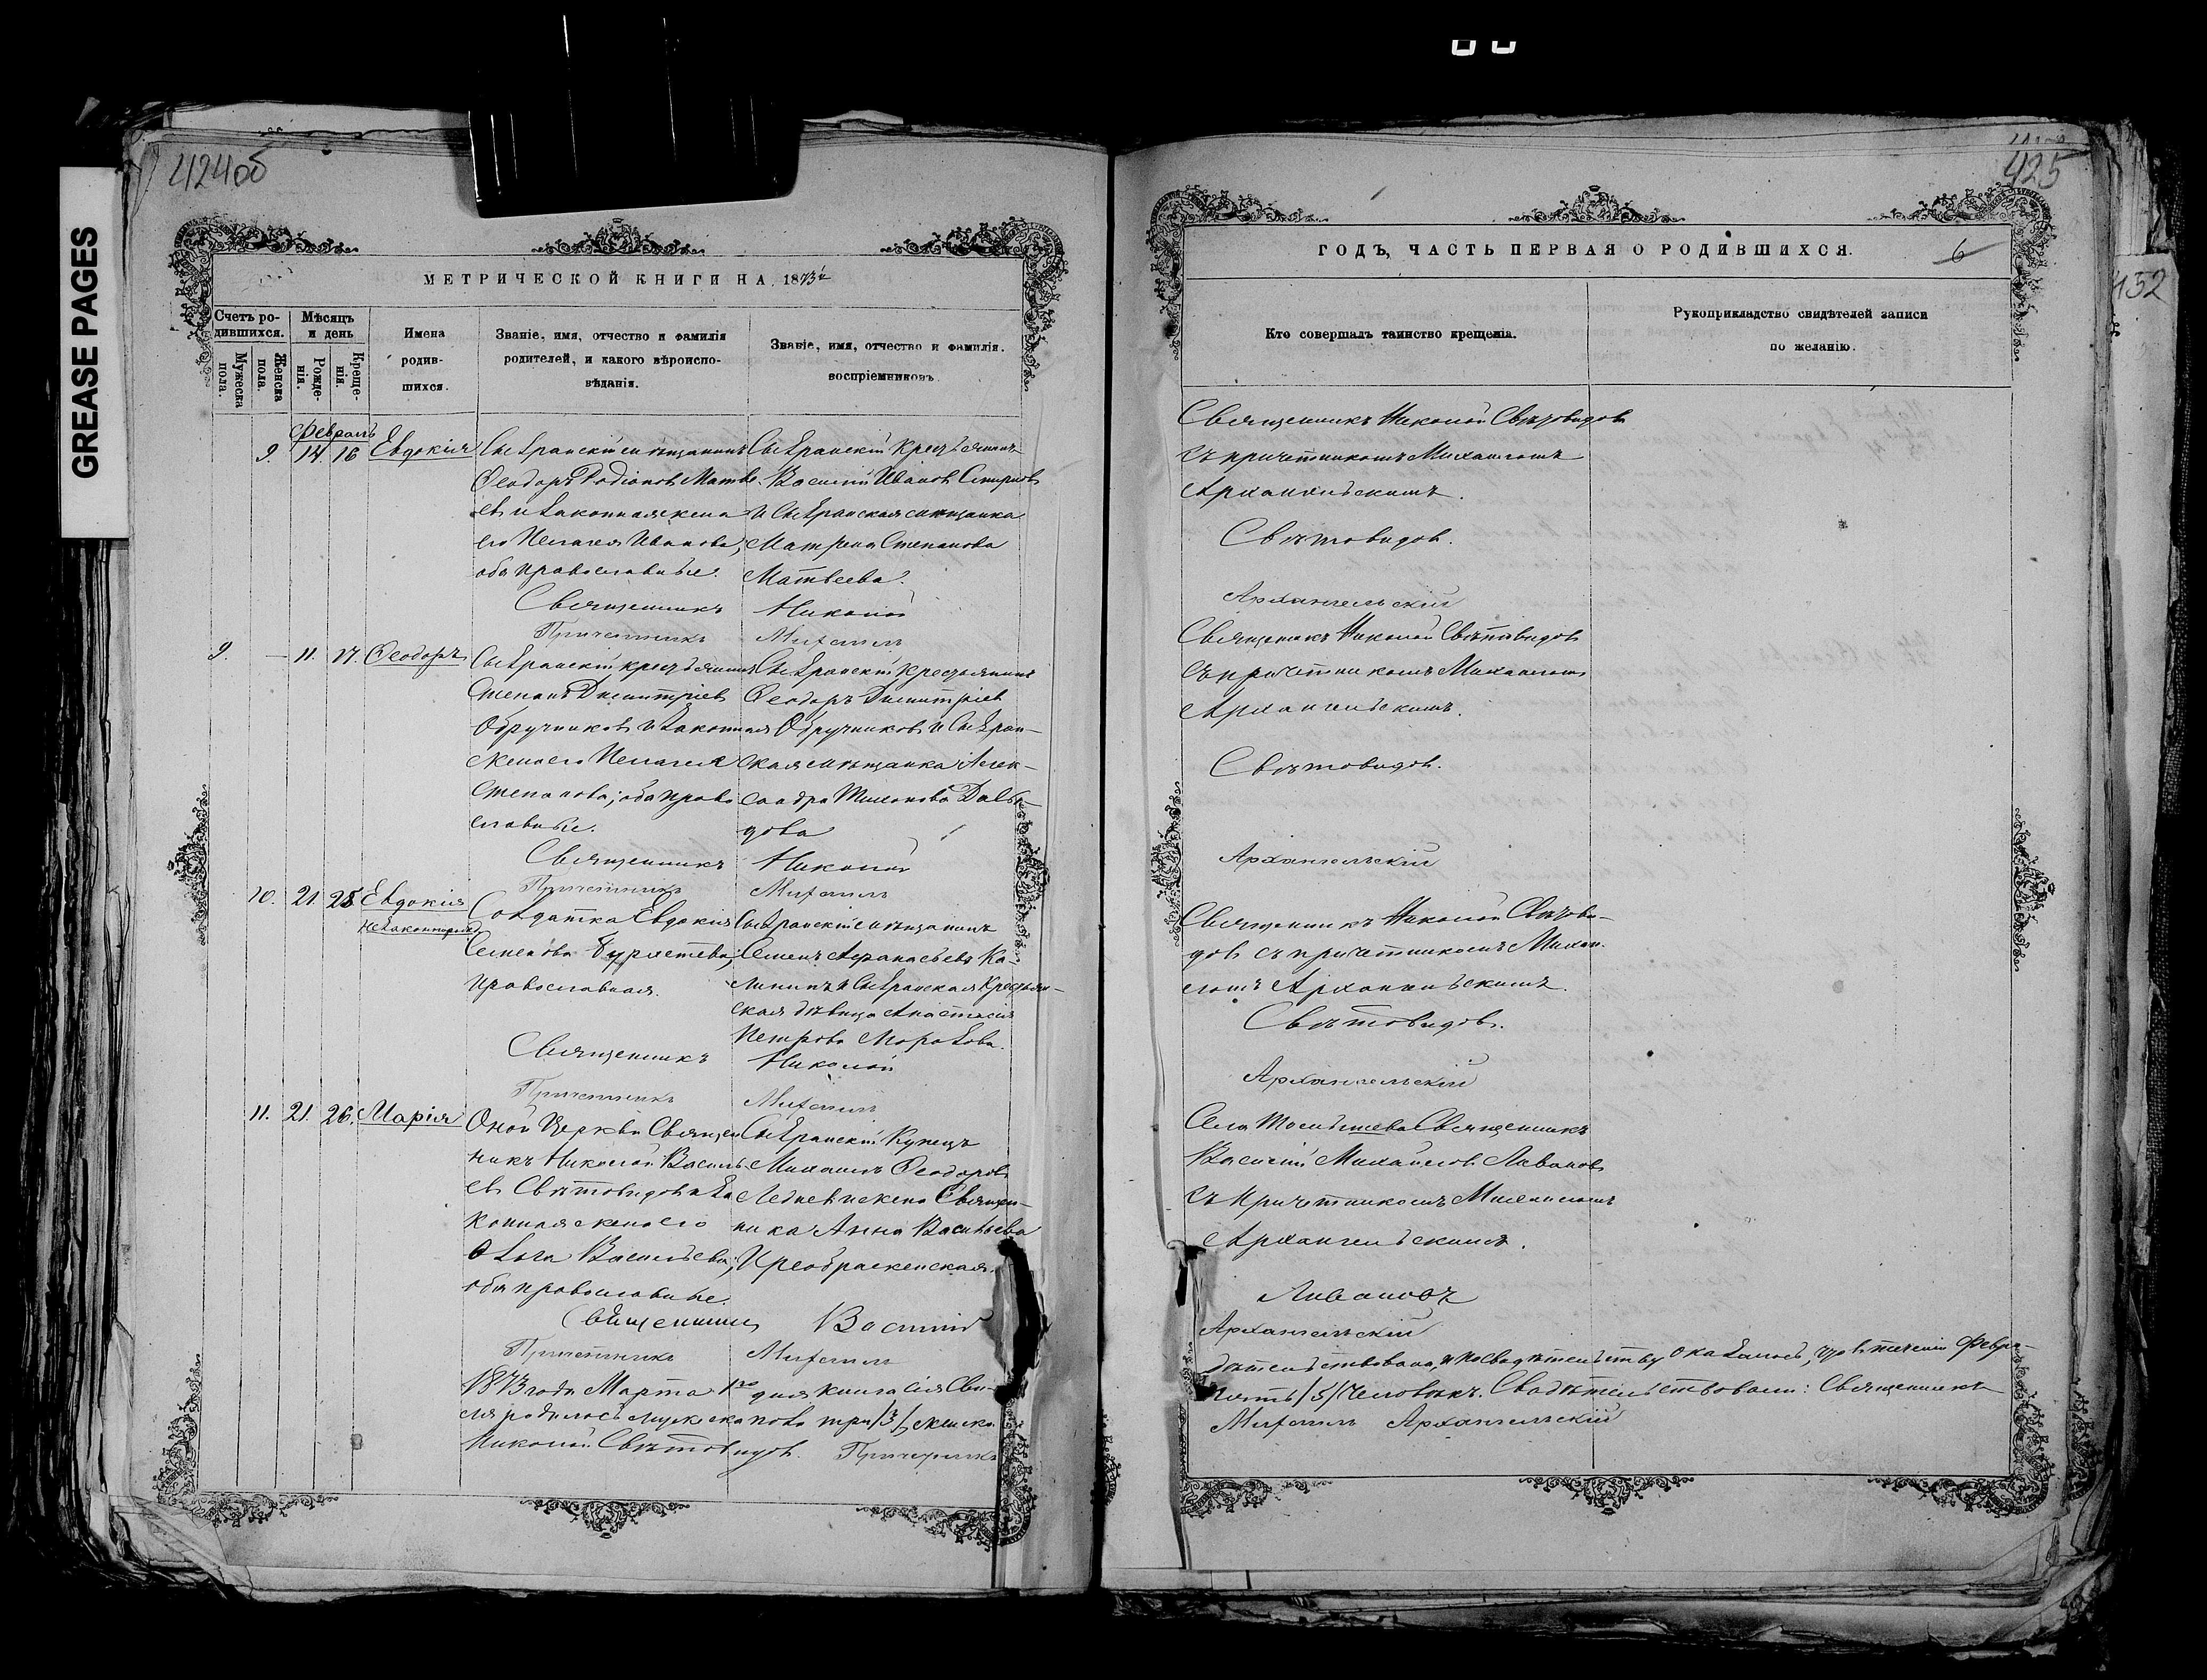 GREASE PAGES
424об
МЕТРИЧЕСКОЙ КНИГИ НА 1873й
Счетъ ро-
дившихся.
Мужеска
пола.
Женска
пола.
Мѣсяцъ
и день
Рожде-
нія.
Креще-
нія.
Имена
родив-
шихся.
Званіе, имя, отчество и фамилія
родителей, и какого вѣроиспо-
вѣданія.
Званіе, имя, отчество и фамилія.
воспріемниковъ.
Февраль
9. 14 16 Евдокія
Сызранскій мѣщанинъ
Ѳеодоръ Родіоновъ Матве-
евъ и законная жена
его Пелагея Иванова,
оба православные.
Сызранскій крестьянинъ
Василій Ивановъ Смирновъ
и Сызранская мѣщанка
Матрена Степанова
Матвеева.
Священникъ Николай
Причетникъ Михаилъ
9. — 11. 17. Ѳеодоръ
Сызранскій крестьянинъ
Стефанъ Димитріевъ
Обручниковъ и законная
жена его Пелагея
Степанова; оба право-
славные.
Сызранскій крестьянинъ
Ѳеодоръ Димитріевъ
Обручниковъ и Сызран-
ская мѣщанка Алек-
сандра Тихонова Давы-
дова
Священникъ Николай
Причетникъ Михаилъ
10. 21. 25 Евдокія
незаконнорож.
Солдатка Евдокія
Семенова
православная.
Сызранскій мѣщанинъ
Семенъ Аѳанасьевъ Ка-
лининъ и Сызранская крестьян-
ская дѣвица Анастасія
Петрова Морозова.
Священникъ Николай
Причетникъ Михаилъ
11. 21. 26. Марія
Оной Церкви Священ-
никъ Николай Василь-
евъ Свѣтовидовъ и за-
конная жена его
Ольга Васильева;
оба православные.
Сызранскій Купецъ
Михаилъ Ѳеодоровъ
Леднев и жена Священ-
ника Анна Васильева
Преображенская.
Священникъ Василій
Причетникъ Михаилъ
1873 года Марта 1го дня книга сія Сви-
ля родилось мужеска пола три /3/, женска
Николай Свѣтовидовъ. Причетникъ
425
ГОДЪ, ЧАСТЬ ПЕРВАЯ О РОДИВШИХСЯ.
6
Кто совершалъ таинство крещенія.
Рукоприкладство свидѣтелей записи
по желанію.
Священникъ Николай Свѣтовидовъ
съ причетникомъ Михаиломъ
Архангельскимъ.
Свѣтовидовъ.
Архангельскій
Священникъ Николай Свѣтовидовъ
съ причетникомъ Михаиломъ
Архангельскимъ.
Свѣтовидовъ.
Архангельскій
Священникъ Николай Свѣтови-
довъ съ причетникомъ Михаи-
ломъ Архангельскимъ.
Свѣтовидовъ.
Архангельскій
Села Священникъ
Василій Михайловъ Ливановъ
съ причетникомъ Михаиломъ
Архангельскимъ.
Ливановъ
Архангельскій
дѣтельствована, и по свидѣтельству оказалось, что въ теченіи Февра-
пять /5/ человѣкъ. Свидѣтельствовали: Священникъ
Михаилъ Архангельскій
432